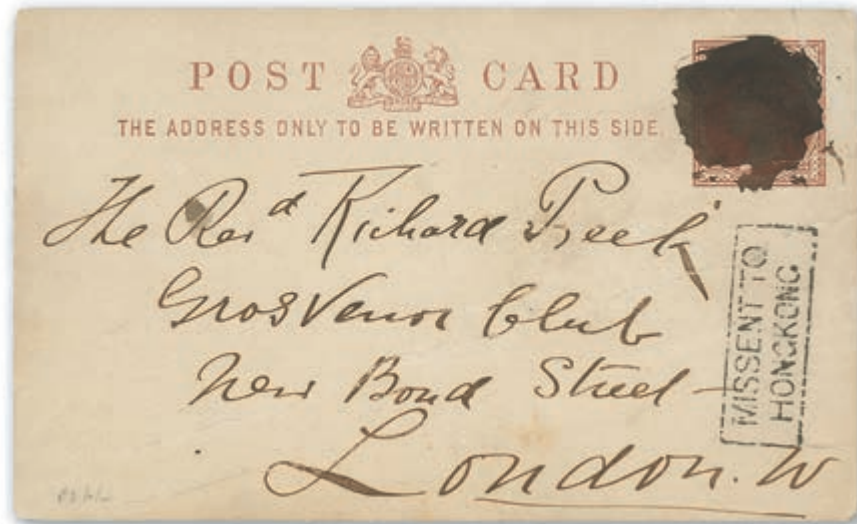 POST CARD
THE ADDRESS ONLY TO BE WRITTEN ON THIS SIDE.
The Revd Richard Peek
Grosvenor Club
New Bond Street
London. W
MISSENT TO
HONGKONG